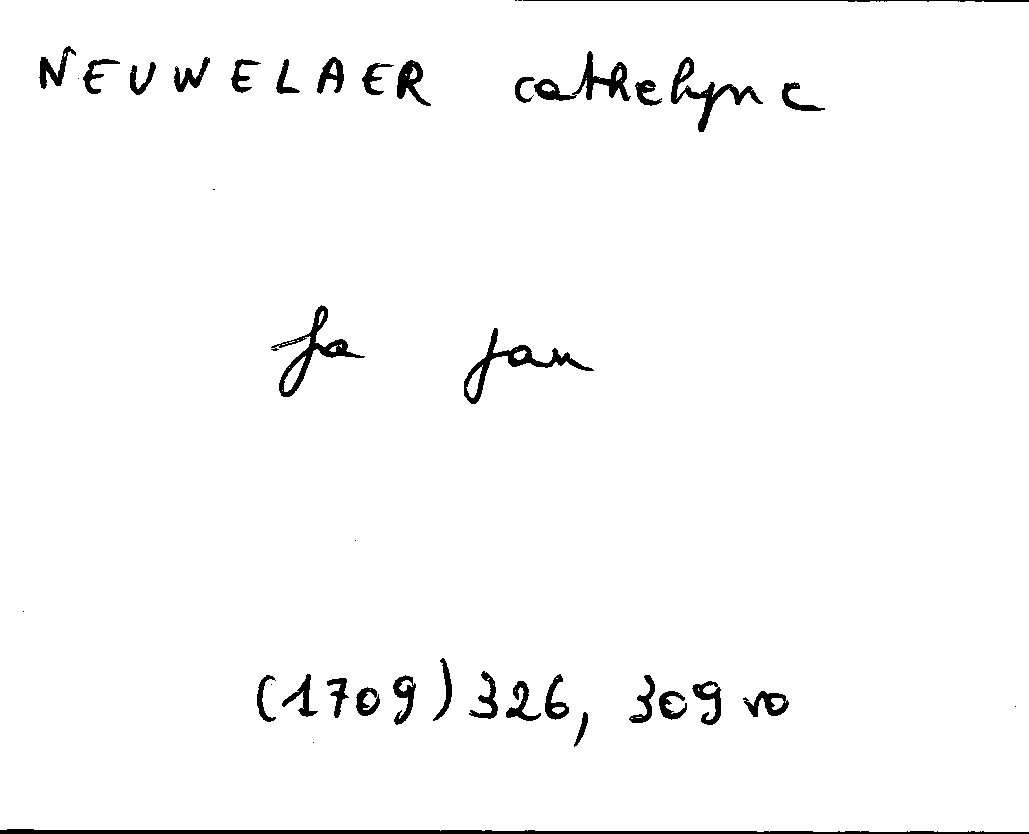 NEUWELAER cathelyne
fa Jan
(1709) 326, 309 vo